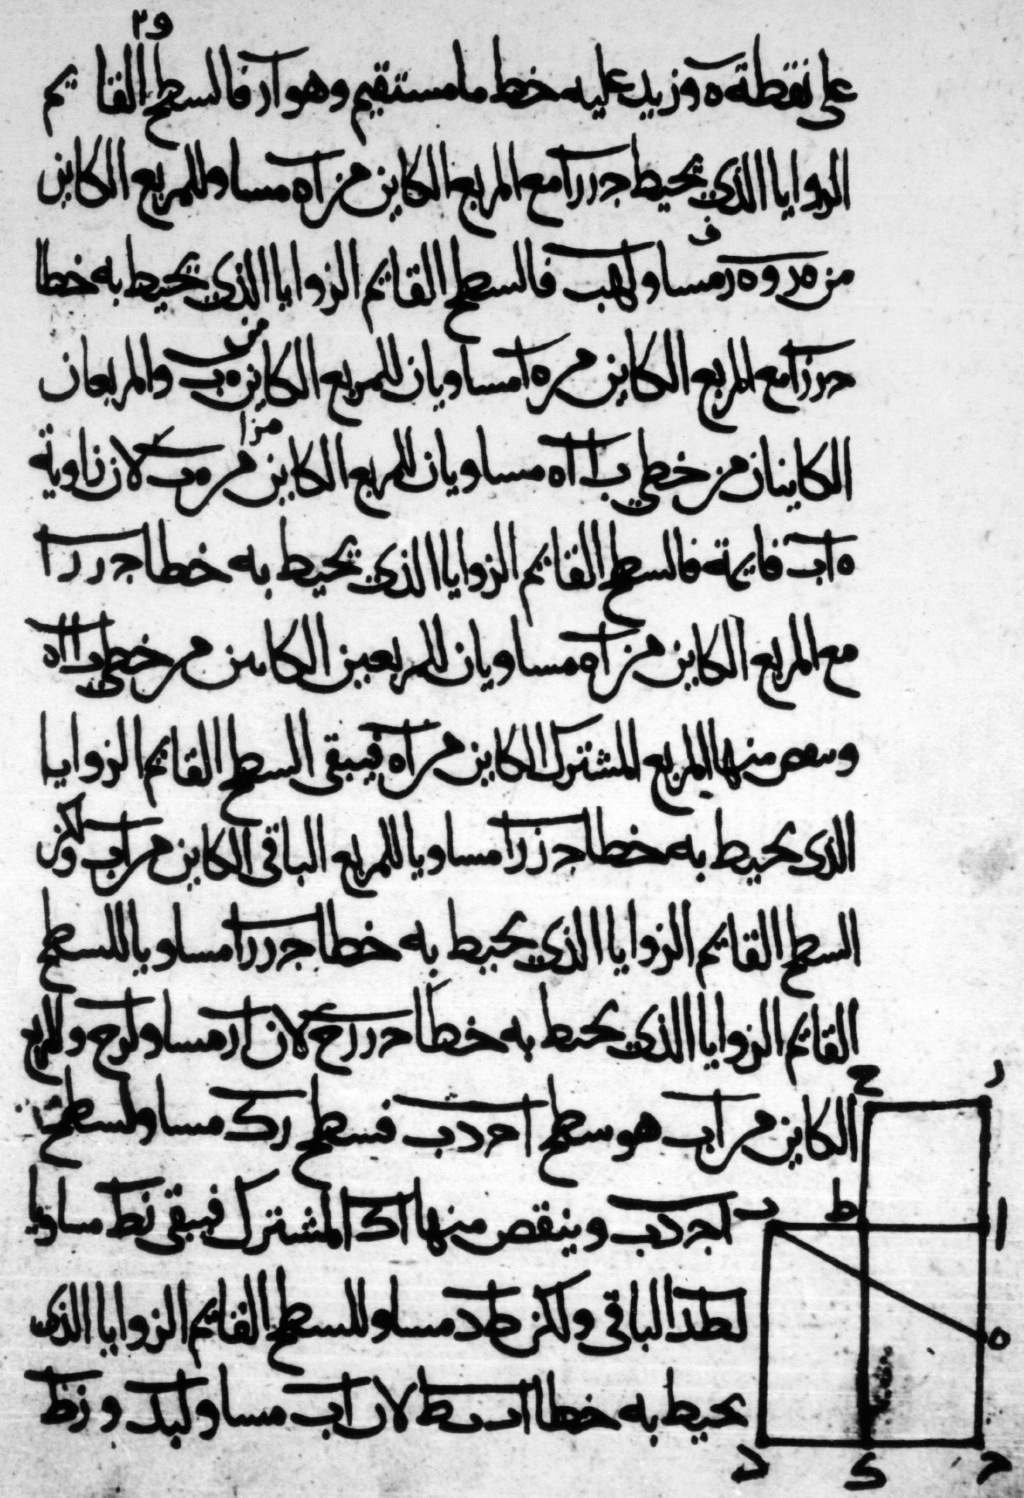 و٢
على نقطة ه وزيد عليه خط ما مستقيم وهو ار فالسطح القايم
الزوايا الذي يحيط جر را مع المربع الكاين من اه مساو للمربع الكاين
من ه ر و ه ر مساو لهب فالسطح القايم الزوايا الذي يحيط به خطا
جر زا مع المربع الكاين من ه ا مساويان للمربع الكاين من ه ب والمربعان
الكاينان من خطي ب ا ا ه مساويان للمربع الكاين من ه ب لان زاوية
ه اب قايمة فالسطح القايم الزوايا الذي يحيط به خطا جر را
مع المربع الكاين من اه مساويان للمربعين الكاينين من خطي ب ا ا ه
وينقص منها المربع المشترك الكاين من اه فيبقى السطح القايم الزوايا
الذي يحيط به خطا جز زا مساويا للمربع الباقي الكاين من اب ولكن
السطح القايم الزوايا الذي يحيط به خطا جر را مساويا للسطح
القايم الزوايا الذي يحيط به خطا جر رح لان ار مساو لرح والمربع
الكاين من اب هو سطح اجدب فسطح رك مساو لسطح
اجدب وينقص منها اك المشترك فيبقى زط مساويا
لطد الباقي ولكن طد مساو للسطح القايم الزوايا الذي
يحيط به خطا اب بط لان اب مساو لبد و زط
ح ر
ب ط ا
ه
د ك ج